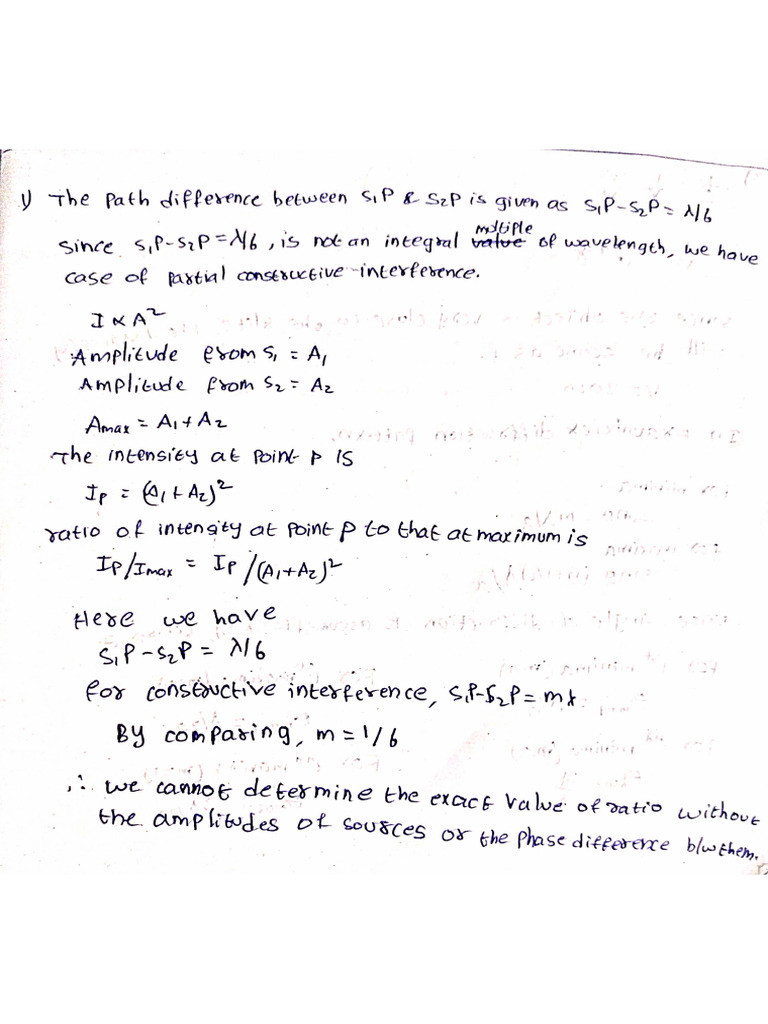 1) The Path difference between S₁P & S₂P is given as S₁P-S₂P = λ/6
Since S₁P-S₂P = λ/6, is not an integral multiple of wavelength, we have
case of partial constructive interference.
I ∝ A²
Amplitude from S₁ = A₁
Amplitude from S₂ = A₂
Amax = A₁ + A₂
The intensity at point P is
Ip = (A₁ + A₂)²
ratio of intensity at point P to that at maximum is
Ip/Imax = Ip/(A₁+A₂)²
Here we have
S₁P - S₂P = λ/6
for constructive interference, S₁P-S₂P = mλ
By comparing, m = 1/6
∴ we cannot determine the exact value of ratio without
the amplitudes of sources or the phase difference b/w them.